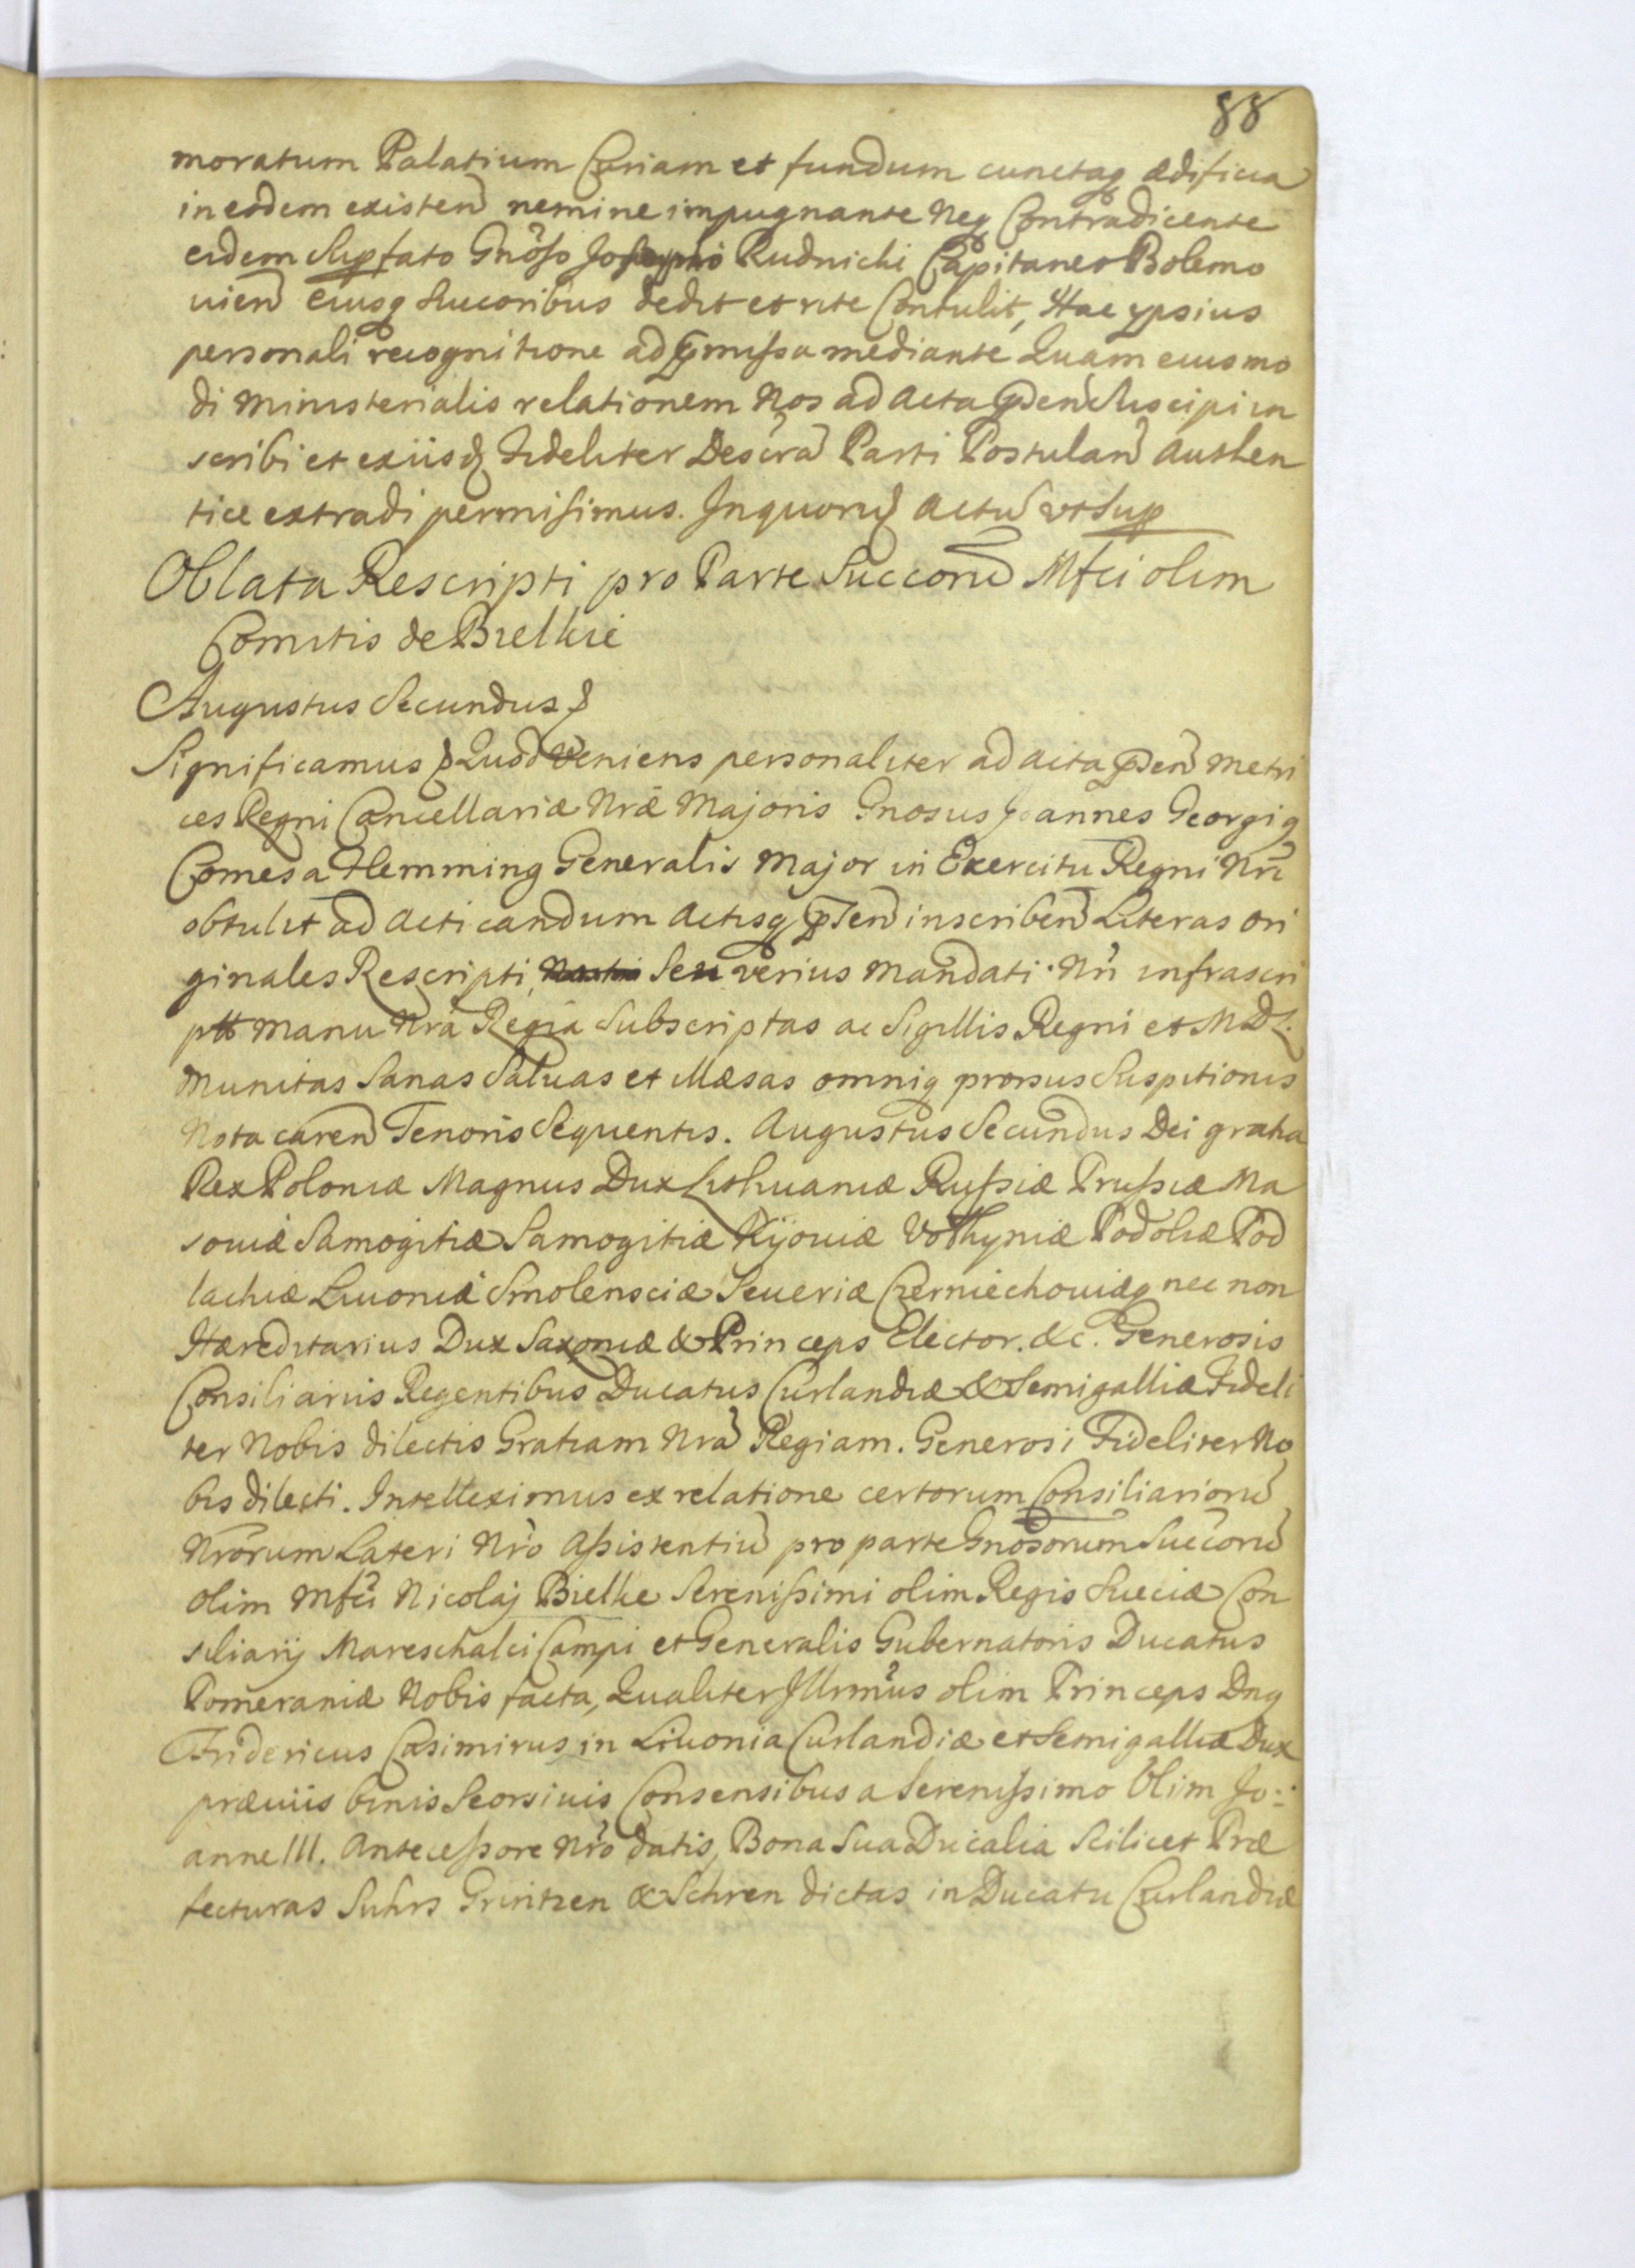 88
moratum Palatium Curiam et fundum cunctaq ædificia
in eodem existen nemine impugnante Neq Contradicente
eidem Supfato Gnoso Josepho Rudnicki Capitaneo Bolemo
uien eiusq Succoribus dedit et rite Contulit, Hac ypsius
personali recognitione ad pmissa mediante Quam eiusmo
di Ministerialis relationem Nos ad Acta psen Suscipi in
scribi et exiisq Fideliter Descra Parti Postulan Authen
tice extradi permisimus. Inquoru Actu vt Sup
Oblata Rescripti pro Parte Succoru Mfci olim
Comitis de Bielkie
Augustus Secundus
Significamus Quod Veniens personaliter ad Acta psen Metri
ces Regni Cancellariæ Nræ Majoris Gnosus Joannes Georgiq
Comes a Flemming Generalis Major in Exercitu Regni Nri
obtulit ad Acticandum Actisq psen inscriben Literas Ori
ginales Rescripti, Seu verius Mandati Nri infrascri
pti Manu Nra Regia Subscriptas ac Sigillis Regni et M D L.
Munitas Sanas Saluas et Illæsas omniq prorsus Suspitionis
Nota caren Tenoris Sequentis. Augustus Secundus Dei gratia
Rex Poloniæ Magnus Dux Lithuaniæ Russiæ Prussiæ Ma
souiæ Samogitiæ Samogitiæ Kijouiæ Volhyniæ Podoliæ Pod
lachiæ Liuoniæ Smolensciæ Seueriæ Czerniechouiæq nec non
Hæreditarius Dux Saxoniæ & Princeps Elector. &c. Generosis
Consiliariis Regentibus Ducatus Curlandiæ & Semigalliæ Fideli
ter Nobis dilectis Gratiam Nra Regiam. Generosi Fideliter No
bis dilecti. Intelleximus ex relatione certorum Consiliarioru
Nrorum Lateri Nro Assistentiu pro parte Gnosorum Succoru
olim Mfci Nicolaj Bielke Serenissimi olim Regis Sueciæ Con
siliarij Mareschalci Campi et Generalis Gubernatoris Ducatus
Pomeraniæ Nobis facta, Qualiter Illrmus olim Princeps Dnq
Fridericus Casimirus in Liuonia Curlandiæ et Semigalliæ Dux
præuiis binis Seorsiuis Consensibus a Serenissimo Olim Jo:
anne III. Antecessore Nro datis, Bona Sua Ducalia Scilicet Præ
fecturas Suhrs Grintzen & Schren dictas in Ducatu Curlandiæ